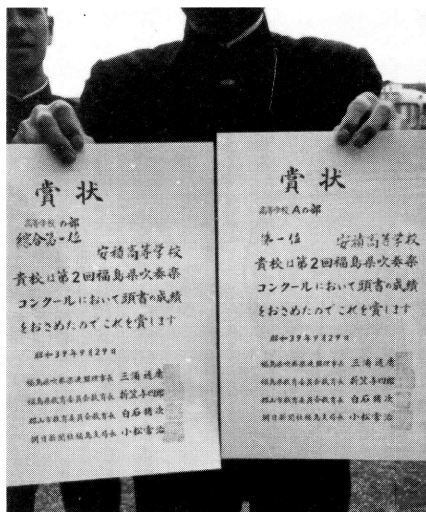 賞状
高等学校の部
綜合第一位
安積高等学校
貴校は第2回福島県吹奏楽
コンクールにおいて頭書の成績
をおさめたのでこれを賞します
昭和39年9月29日
福島県吹奏楽連盟理事長 三浦通庸
福島県教育委員会教育長 新笠与四郎
郡山市教育委員会教育長 白石猪次
朝日新聞社福島支局長 小松雪治
賞状
高等学校Aの部
第一位 安積高等学校
貴校は第2回福島県吹奏楽
コンクールにおいて頭書の成績
をおさめたのでこれを賞します
昭和39年9月29日
福島県吹奏楽連盟理事長 三浦通庸
福島県教育委員会教育長 新笠与四郎
郡山市教育委員会教育長 白石猪次
朝日新聞社福島支局長 小松雪治